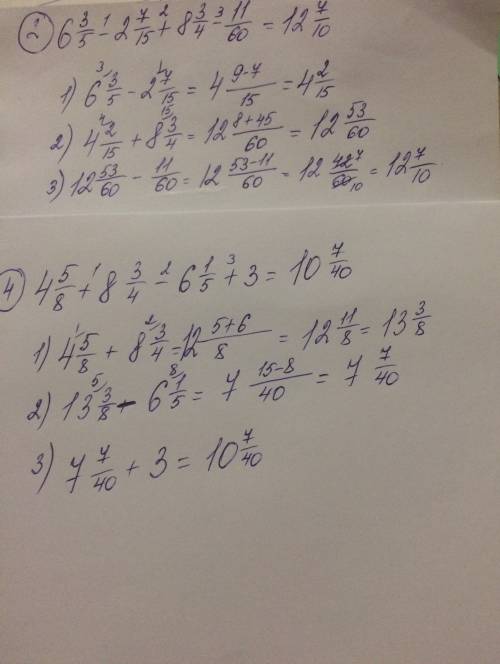 ② 6 3/5 - 2 7/15 + 8 3/4 - 11/60 = 12 7/10
1) 6 3/5 - 2 7/15 = 4 (9-7)/15 = 4 2/15
2) 4 2/15 + 8 3/4 = 12 (8+45)/60 = 12 53/60
3) 12 53/60 - 11/60 = 12 (53-11)/60 = 12 42/60 = 12 7/10
④ 4 5/8 + 8 3/4 - 6 1/5 + 3 = 10 7/40
1) 4 5/8 + 8 3/4 = 12 (5+6)/8 = 12 11/8 = 13 3/8
2) 13 3/8 - 6 1/5 = 7 (15-8)/40 = 7 7/40
3) 7 7/40 + 3 = 10 7/40